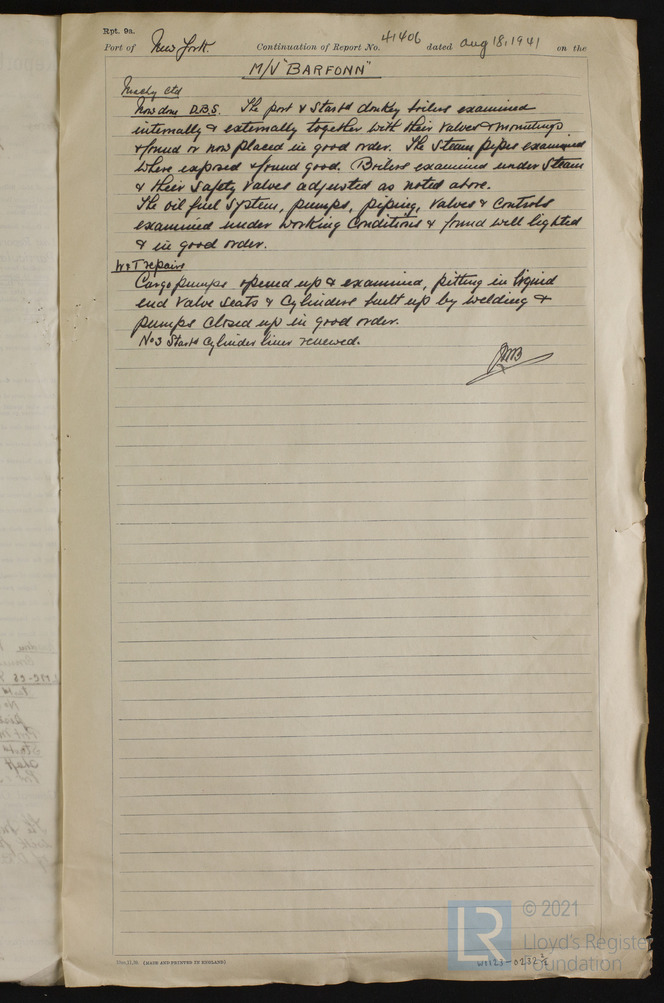 Rpt. 9a.
Port of New York. Continuation of Report No. 41406 dated Aug 18, 1941 on the
M/V "BARFONN"
Mchy ctd
Now done D.B.S. The port & Starbd donkey boilers examined
internally & externally together with their valves & mountings
& found or now placed in good order. The steam pipes examined
where exposed & found good. Boilers examined under steam
& their safety valves adjusted as noted above.
The oil fuel system, pumps, piping, valves & controls
examined under working conditions & found well lighted
& in good order.
W&T repairs
Cargo pumps opened up & examined, pitting in liquid
end valve seats & cylinders built up by welding &
pumps closed up in good order.
No 3 Starbd cylinder liner renewed.
(MADE AND PRINTED IN ENGLAND)
W1123-0232 ½
LR © 2021
Lloyd's Register
Foundation